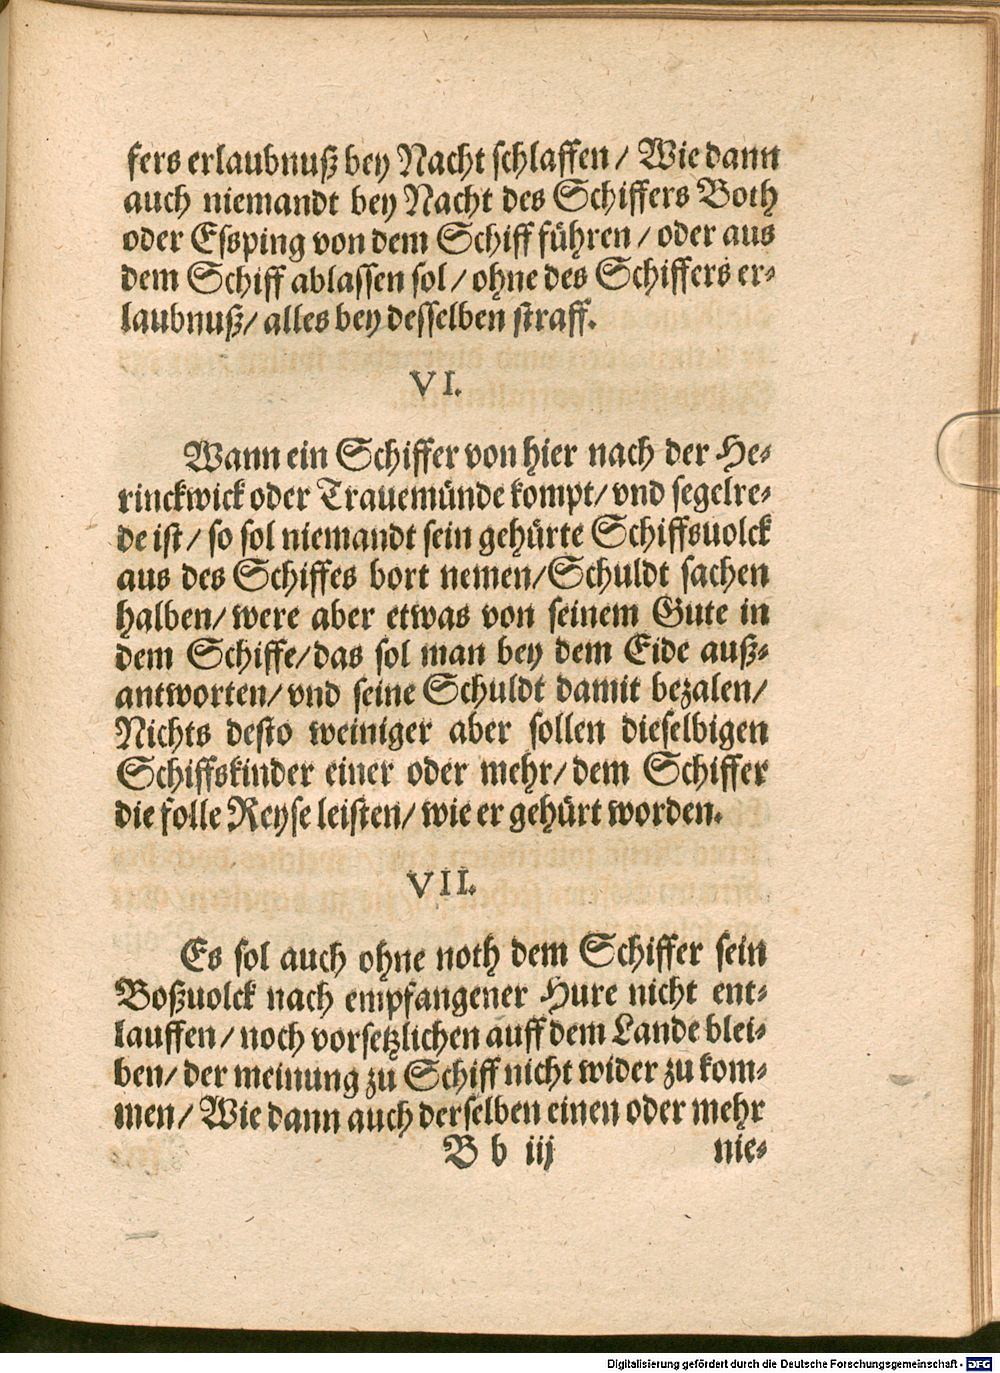 fers erlaubnuß bey Nacht schlaffen / Wie dann
auch niemandt bey Nacht des Schiffers Both
oder Essping von dem Schiff führen / oder aus
dem Schiff ablassen sol / ohne des Schiffers er-
laubnuß / alles bey desselben straff.
VI.
Wann ein Schiffer von hier nach der He-
rinckwick oder Trauemünde kompt / vnd segelre-
de ist / so sol niemandt sein gehürte Schiffsuolck
aus des Schiffes bort nemen / Schuldt sachen
halben / were aber etwas von seinem Gute in
dem Schiffe / das sol man bey dem Eide auß-
antworten / vnd seine Schuldt damit bezalen /
Nichts desto weiniger aber sollen dieselbigen
Schiffskinder einer oder mehr / dem Schiffer
die folle Reyse leisten / wie er gehürt worden.
VII.
Es sol auch ohne noth dem Schiffer sein
Boßuolck nach empfangener Hure nicht ent-
lauffen / noch vorsetzlichen auff dem Lande blei-
ben / der meinung zu Schiff nicht wider zu kom-
men / Wie dann auch derselben einen oder mehr
B b iij nie-
Digitalisierung gefördert durch die Deutsche Forschungsgemeinschaft - DFG